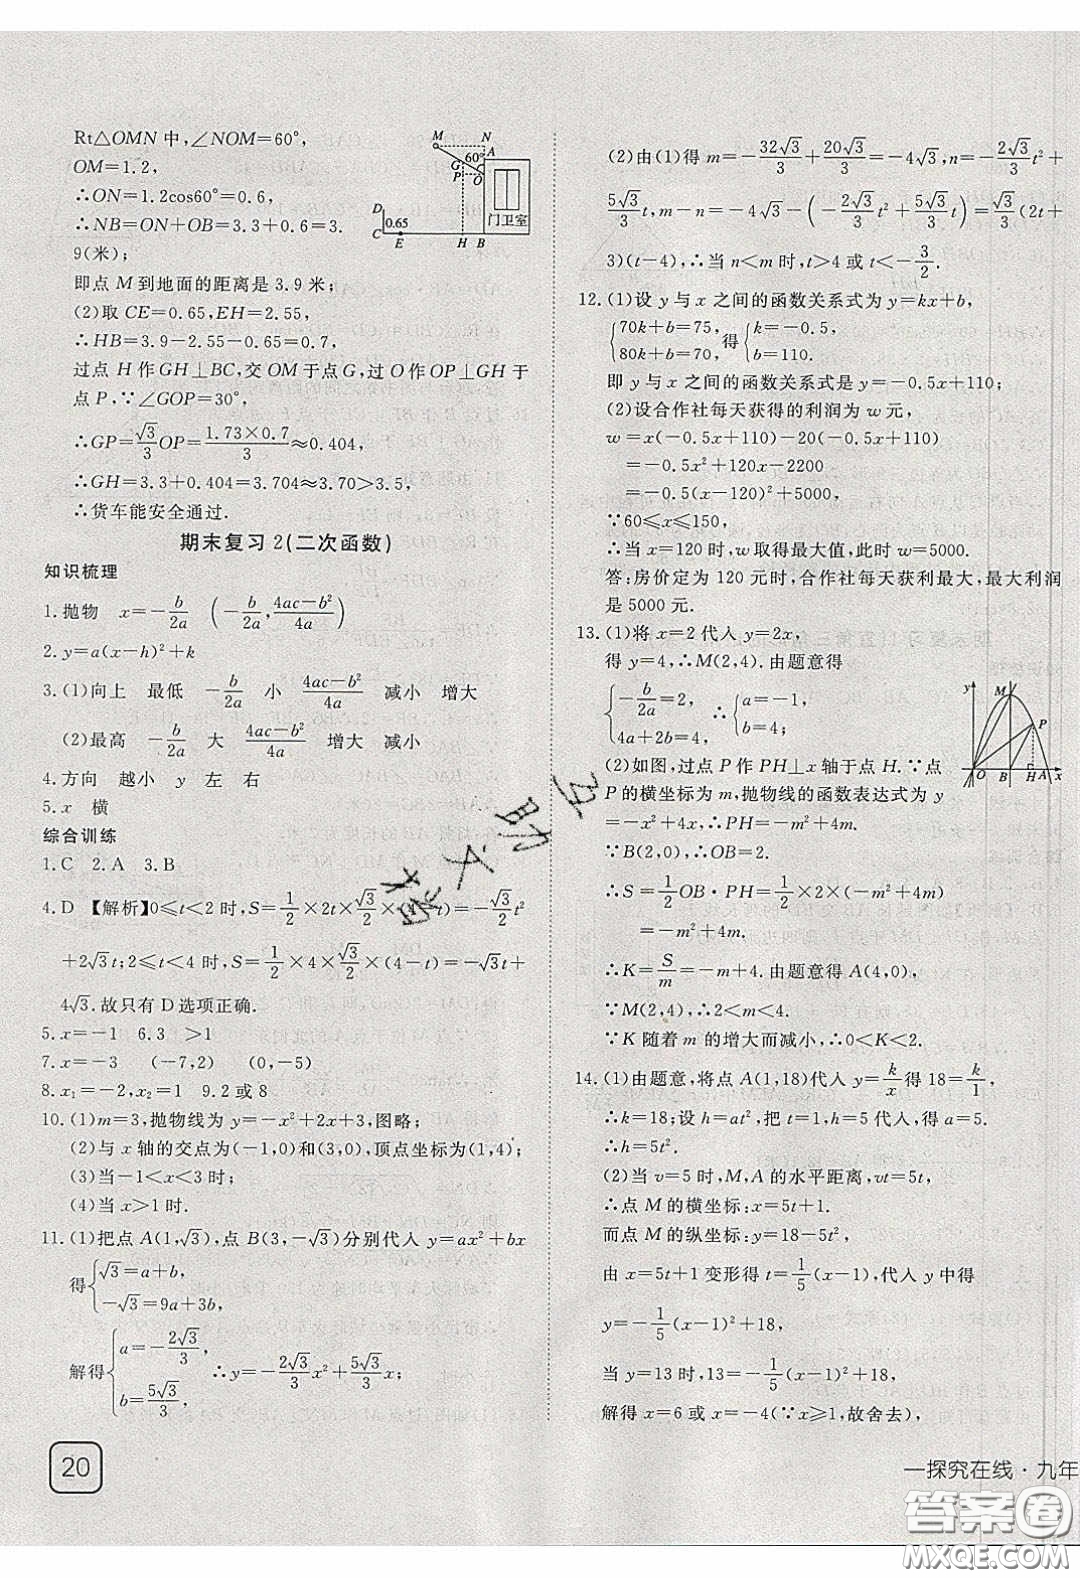 Rt△OMN 中,∠NOM=60°,
OM=1.2,
∴ON=1.2cos60°=0.6,
∴NB=ON+OB=3.3+0.6=3.
9(米);
即点 M 到地面的距离是 3.9 米;
(2)取 CE=0.65,EH=2.55,
∴HB=3.9-2.55-0.65=0.7,
过点 H 作 GH⊥BC,交 OM 于点 G,过 O 作 OP⊥GH 于
点 P,∵∠GOP=30°,
∴GP=√3/3 OP=(1.73×0.7)/3≈0.404,
∴GH=3.3+0.404=3.704≈3.70>3.5,
∴货车能安全通过.
M N A 60° G P O D 0.65 C E H B 门卫室
期末复习 2(二次函数)
知识梳理
1.抛物 x=-b/2a (-b/2a, (4ac-b²)/4a)
2.y=a(x-h)²+k
3.(1)向上 最低 -b/2a (4ac-b²)/4a 减小 增大
(2)最高 -b/2a 大 (4ac-b²)/4a 增大 减小
4.方向 越小 y 左 右
5.x 横
综合训练
1.C 2.A 3.B
4.D 【解析】0≤t<2 时,S=1/2×2t×√3/2×(4-t)=-√3/2 t²
+2√3t;2≤t<4 时,S=1/2×4×√3/2×(4-t)=-√3t+
4√3.故只有 D 选项正确.
5.x=-1 6.3 >1
7.x=-3 (-7,2) (0,-5)
8.x₁=-2,x₂=1 9.2 或 8
10.(1)m=3,抛物线为 y=-x²+2x+3,图略;
(2)与 x 轴的交点为(-1,0)和(3,0),顶点坐标为(1,4);
(3)当-1<x<3 时;
(4)当 x>1 时.
11.(1)把点 A(1,√3),点 B(3,-√3)分别代入 y=ax²+bx
得{√3=a+b,
-√3=9a+3b,
解得{a=-2√3/3,
b=5√3/3, ∴y=-2√3/3 x²+5√3/3 x;
20
(2)由(1)得 m=-32√3/3+20√3/3=-4√3,n=-2√3/3 t²+
5√3/3 t,m-n=-4√3-(-2√3/3 t²+5√3/3 t)=√3/3(2t+
3)(t-4),∴当 n<m 时,t>4 或 t<-3/2.
12.(1)设 y 与 x 之间的函数关系式为 y=kx+b,
{70k+b=75,
80k+b=70, 得{k=-0.5,
b=110.
即 y 与 x 之间的函数关系式是 y=-0.5x+110;
(2)设合作社每天获得的利润为 w 元,
w=x(-0.5x+110)-20(-0.5x+110)
=-0.5x²+120x-2200
=-0.5(x-120)²+5000,
∵60≤x≤150,
∴当 x=120 时,w 取得最大值,此时 w=5000.
答:房价定为 120 元时,合作社每天获利最大,最大利润
是 5000 元.
13.(1)将 x=2 代入 y=2x,
得 y=4,∴M(2,4).由题意得
{-b/2a=2,
4a+2b=4, ∴{a=-1,
b=4;
(2)如图,过点 P 作 PH⊥x 轴于点 H.∵点
P 的横坐标为 m,抛物线的函数表达式为 y
=-x²+4x,∴PH=-m²+4m.
∵B(2,0),∴OB=2.
∴S=1/2 OB·PH=1/2×2×(-m²+4m)
=-m²+4m.
∴K=S/m=-m+4.由题意得 A(4,0),
∵M(2,4),∴2<m<4.
∵K 随着 m 的增大而减小,∴0<K<2.
y M P O B H A x
14.(1)由题意,将点 A(1,18)代入 y=k/x 得 18=k/1,
∴k=18;设 h=at²,把 t=1,h=5 代入,得 a=5.
∴h=5t².
(2)当 v=5 时,M,A 的水平距离,vt=5t,
∴点 M 的横坐标:x=5t+1
而点 M 的纵坐标:y=18-5t²,
由 x=5t+1 变形得 t=1/5(x-1),代入 y 中得
y=-1/5(x-1)²+18,
当 y=13 时,13=-1/5(x-1)²+18,
解得 x=6 或 x=-4(∵x≥1,故舍去),
一探究在线·九年
答案圈
MXQE.COM